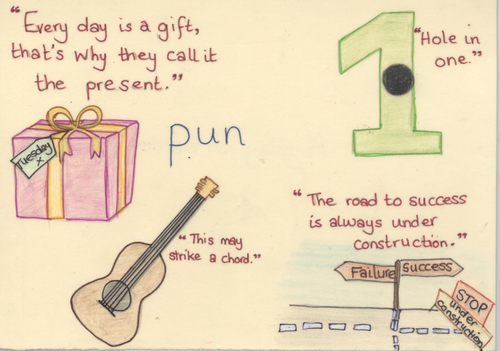 "Every day is a gift,
that's why they call it
the present."
Tuesday
x
pun
1
"Hole in
one."
"This may
strike a chord."
"The road to success
is always under
construction."
Failure
Success
STOP
under
construction